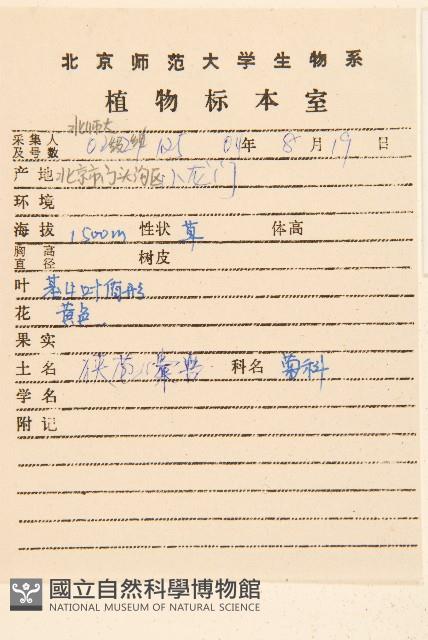 北京师范大学生物系
植物标本室
北师大
采集人及号数 125 04年 8月19日
产地 北京市门头沟区小龙门
环境
海拔 1500m 性状 草 体高
胸高直径 树皮
叶 基生叶
花 黄色
果实
土名 科名 菊科
学名
附记
國立自然科學博物館
NATIONAL MUSEUM OF NATURAL SCIENCE